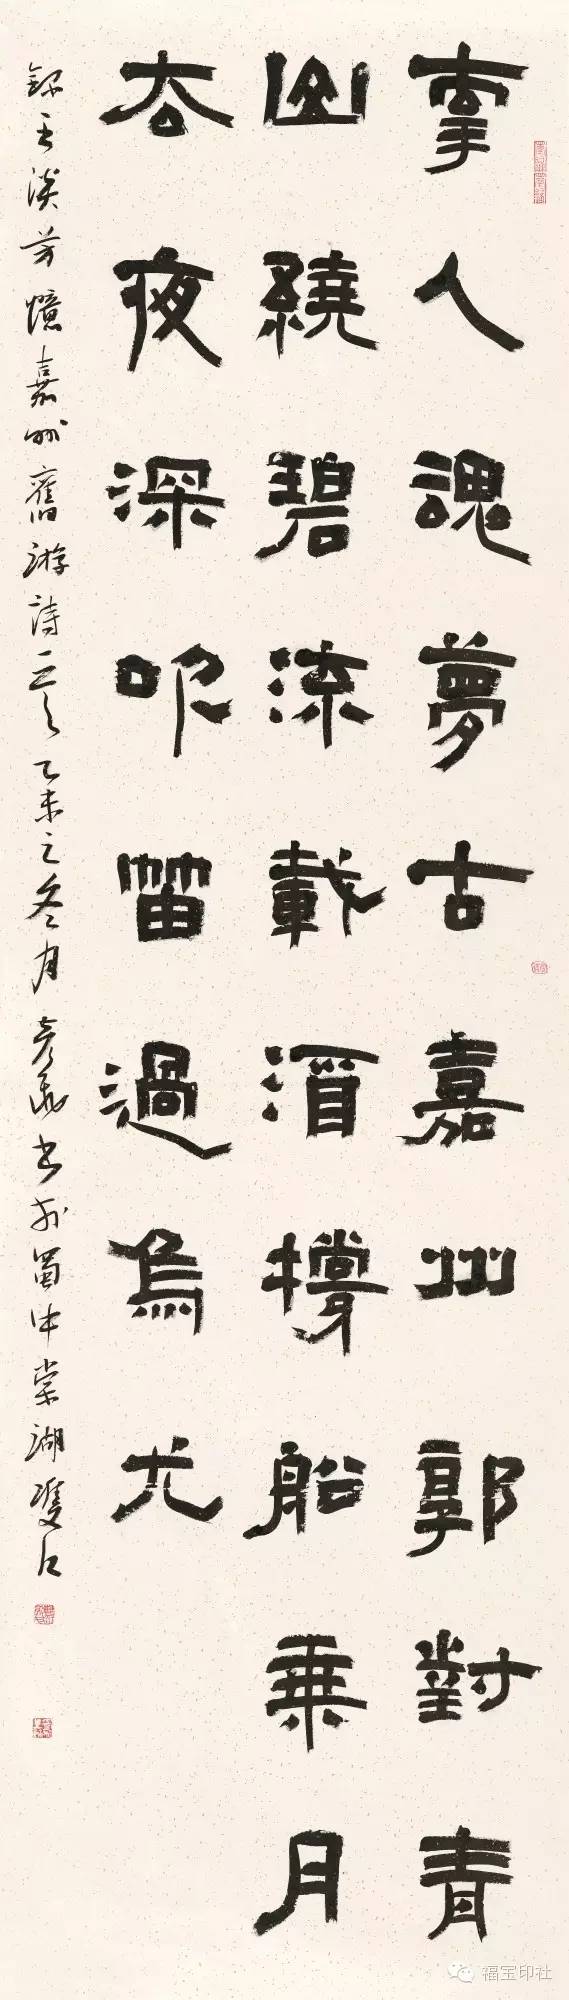 牽人魂夢古嘉州郭對青
山繞碧流載酒撐船乘月
去夜深吹笛過烏尤
錄王淡芳憶嘉州舊游詩 乙未之冬月 書於蜀中棠湖
福宝印社